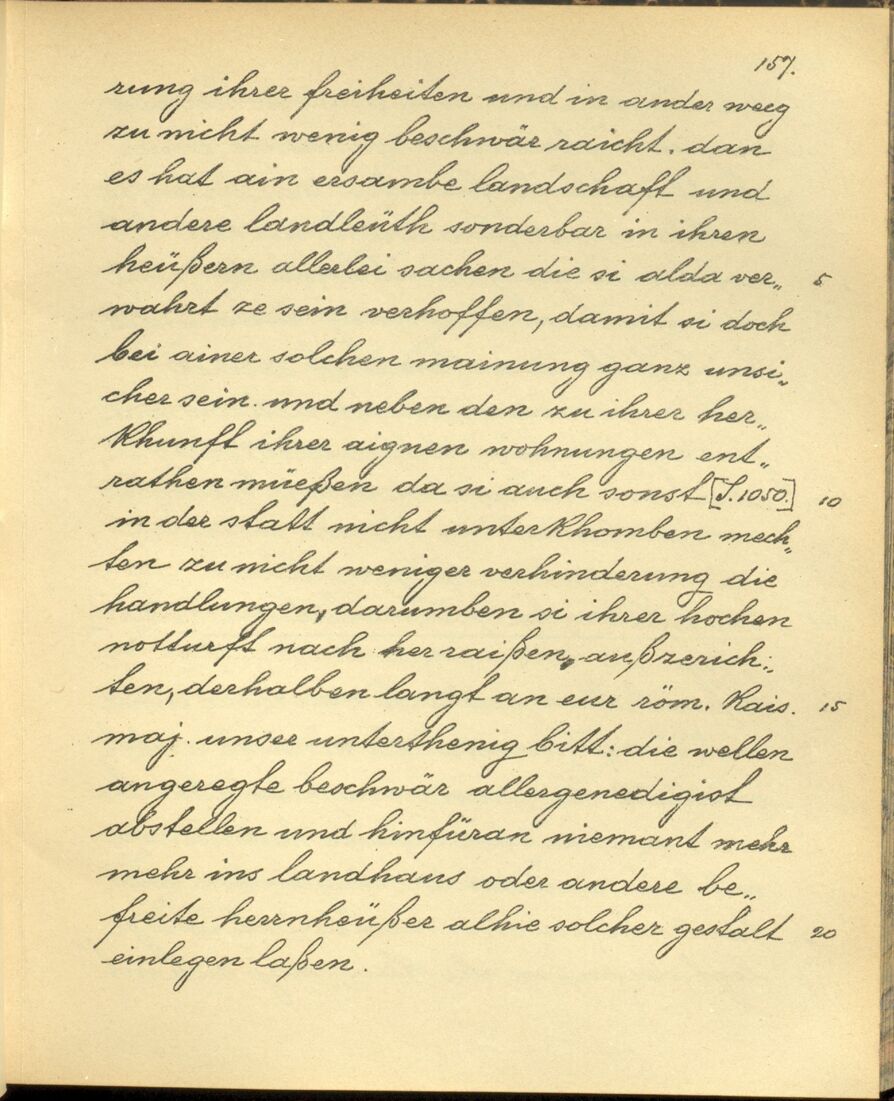 157.
rung ihrer freiheiten und in ander weeg
zu nicht wenig beschwär raicht. dan
es hat ain ersambe landschaft und
andere landleüth sonderbar in ihren
heüßern allerlei sachen die si alda ver„ 5
wahrt ze sein verhoffen, damit si doch
bei ainer solchen mainung ganz unsi„
cher sein. und neben den zu ihrer her„
khunft ihrer aignen wohnungen ent„
rathen müeßen da si auch sonst [S. 1050.] 10
in der statt nicht unterkhomben mech„
ten zu nicht weniger verhinderung die
handlungen, darumben si ihrer hochen
notturft nach her raißen, außzerich„
ten, derhalben langt an eur röm. kais. 15
maj. unser unterthenig bitt: die wellen
angeregte beschwär allergenedigist
abstellen und hinfüran niemant mehr
mehr ins landhaus oder andere be„
freite herrnheüßer alhie solcher gestalt 20
einlegen laßen.